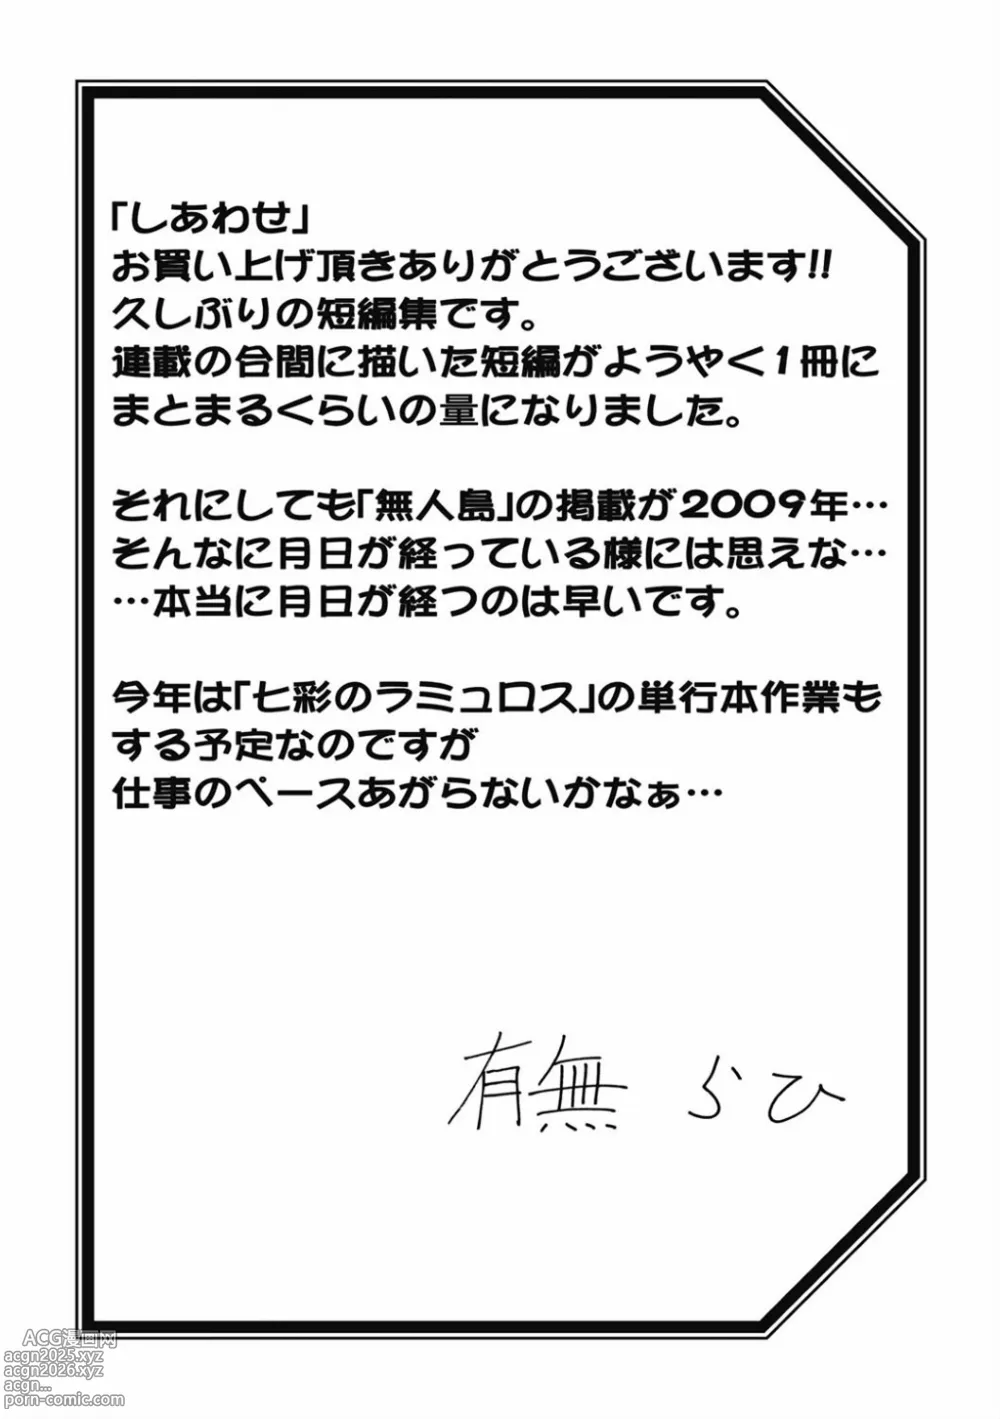 「しあわせ」
お買い上げ頂きありがとうございます!!
久しぶりの短編集です。
連載の合間に描いた短編がようやく1冊に
まとまるくらいの量になりました。
それにしても「無人島」の掲載が2009年…
そんなに月日が経っている様には思えな…
…本当に月日が経つのは早いです。
今年は「七彩のラミュロス」の単行本作業も
する予定なのですが
仕事のペースあがらないかなぁ…
有無 らひ
ACG漫画网
acgn2025.xyz
acgn2026.xyz
acgn...
porn-comic.com